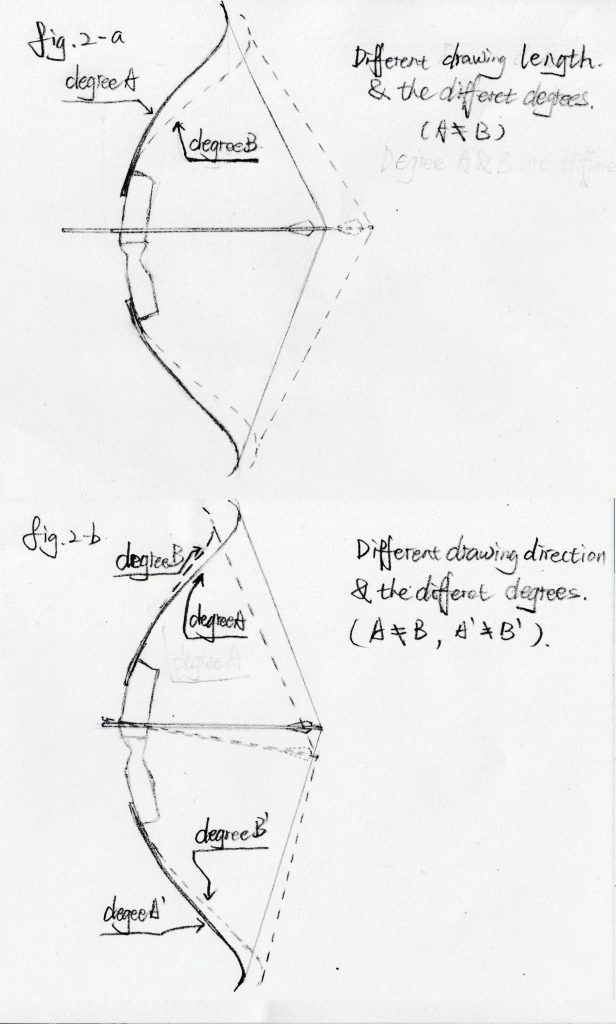 fig.2-a
degreeA
degreeB
Different drawing length.
& the differet degrees.
(A≠B)
Degree A & B are differe
fig.2-b
degreeB
degreeA
degreeA
Different drawing direction
& the differet degrees.
(A≠B, A'≠B').
degreeB'
degeeA'